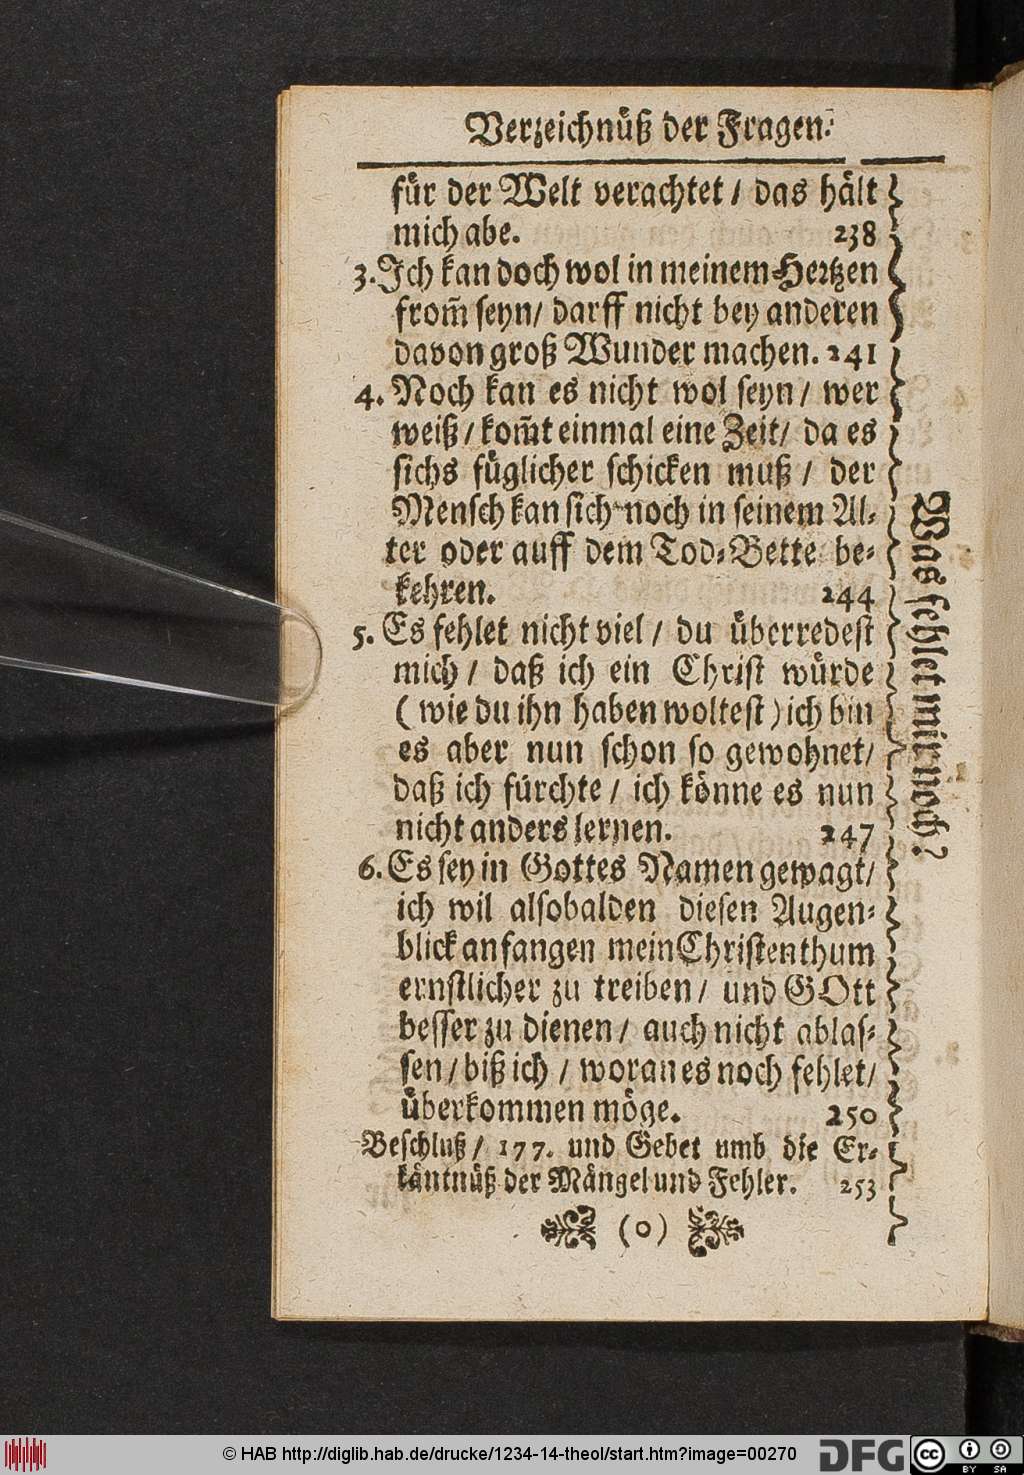 Verzeichnüß der Fragen.
für der Welt verachtet / das hält
mich abe. 238
3. Jch kan doch wol in meinem Hertzen
from̃ seyn / darff nicht bey anderen
davon groß Wunder machen. 241
4. Noch kan es nicht wol seyn / wer
weiß / kom̃t einmal eine Zeit / da es
sichs füglicher schicken muß / der
Mensch kan sich noch in seinem Al-
ter oder auff dem Tod-Bette be-
kehren. 244
5. Es fehlet nicht viel / du überredest
mich / daß ich ein Christ würde
( wie du ihn haben woltest ) ich bin
es aber nun schon so gewohnet /
daß ich fürchte / ich könne es nun
nicht anders lernen. 247
6. Es sey in Gottes Namen gewagt /
ich wil alsobalden diesen Augen-
blick anfangen mein Christenthum
ernstlicher zu treiben / und GOtt
besser zu dienen / auch nicht ablas-
sen / biß ich / woran es noch fehlet /
überkommen möge. 250
Beschluß / 177. und Gebet umb die Er-
käntnüß der Mängel und Fehler. 253
(o)
Was fehlet mir noch?
© HAB http://diglib.hab.de/drucke/1234-14-theol/start.htm?image=00270
DFG
cc
BY SA